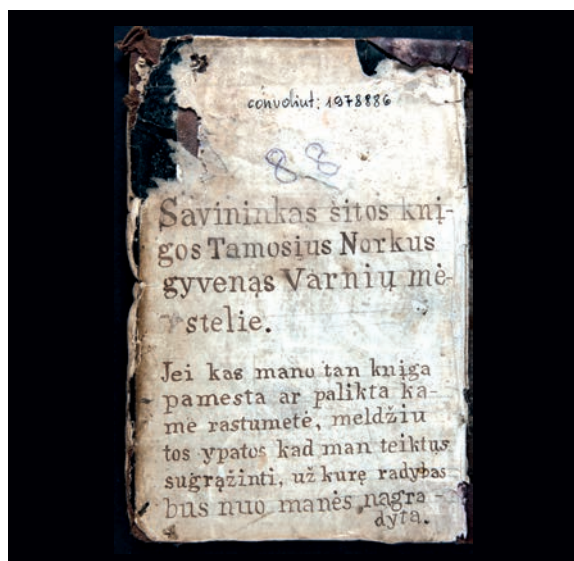 convoliut: 1978886
88
Savininkas šitos knį-
gos Tamosius Norkus
gyvenąs Varnių mė-
stelie.
Jei kas mano tan knįga
pamesta ar palikta ka-
mė rastumetė, meldžiu
tos ypatos kad man teiktus
sugrąžinti, už kurę radybas
bus nuo manės nagra-
dyta.